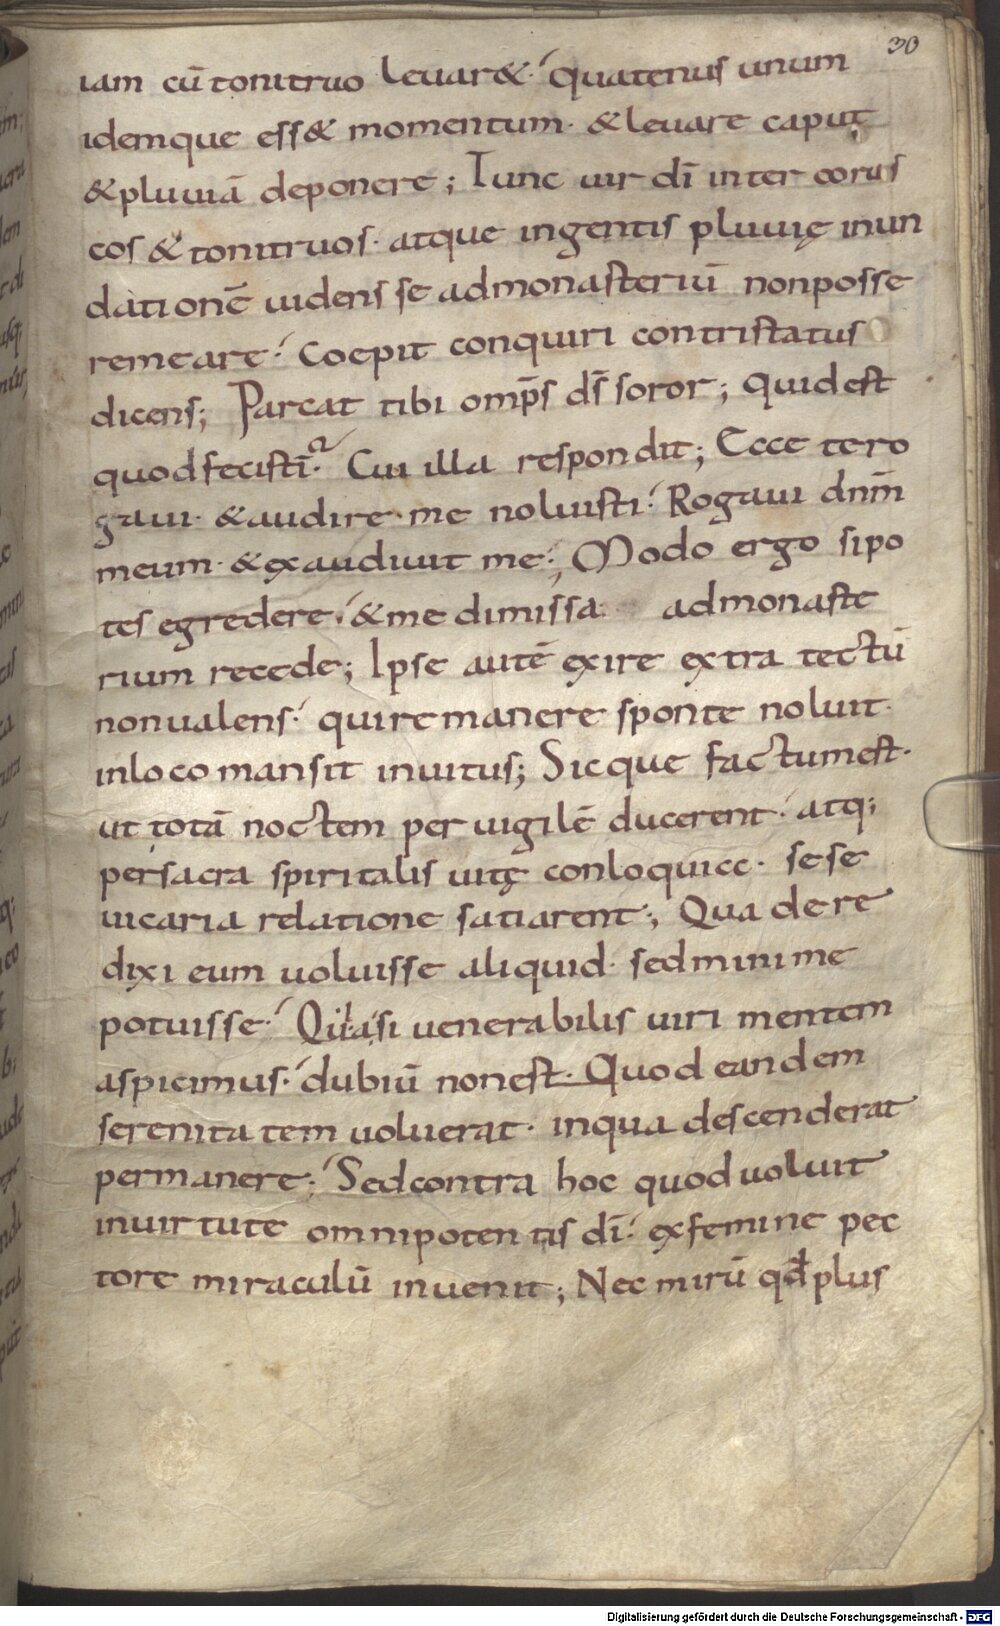 30
iam cū tonitruo leuar&· quatenus unum
idemque ess& momentum· & leuare caput
& pluuiā deponere; Tunc uir dī inter corus
cos & tonitruos· atque ingentis pluuię inun
dationē uidens se ad monasteriū non posse
remeare· Coepit conquiri contristatus
dicens; Parcat tibi omp̄s ds̄ soror; quid est
quod fecisti· Cui illa respondit; Ecce te ro
gaui· & audire me noluisti· Rogaui dnm̄
meum· & exaudiuit me; Modo ergo si po
tes egredere· & me dimissa ad monaste
rium recede; Ipse autē exire extra tectū
non ualens· qui remanere sponte noluit·
in loco mansit inuitus; Sicque factum est·
ut totā noctem peruigilē ducerent· atq;
per sacra spiritalis uitę conloquia· sese
uicaria relatione satiarent; Qua de re
dixi eum uoluisse aliquid· sed minime
potuisse· Quia si uenerabilis uiri mentem
aspicimus· dubiū non est· Quod eandem
serenitatem uoluerat· in qua descenderat
permanere; Sed contra hoc quod uoluit
in uirtute omnipotentis dī· ex femine pec
tore miraculū inuenit; Nec mirū qd plus
Digitalisierung gefördert durch die Deutsche Forschungsgemeinschaft - DFG